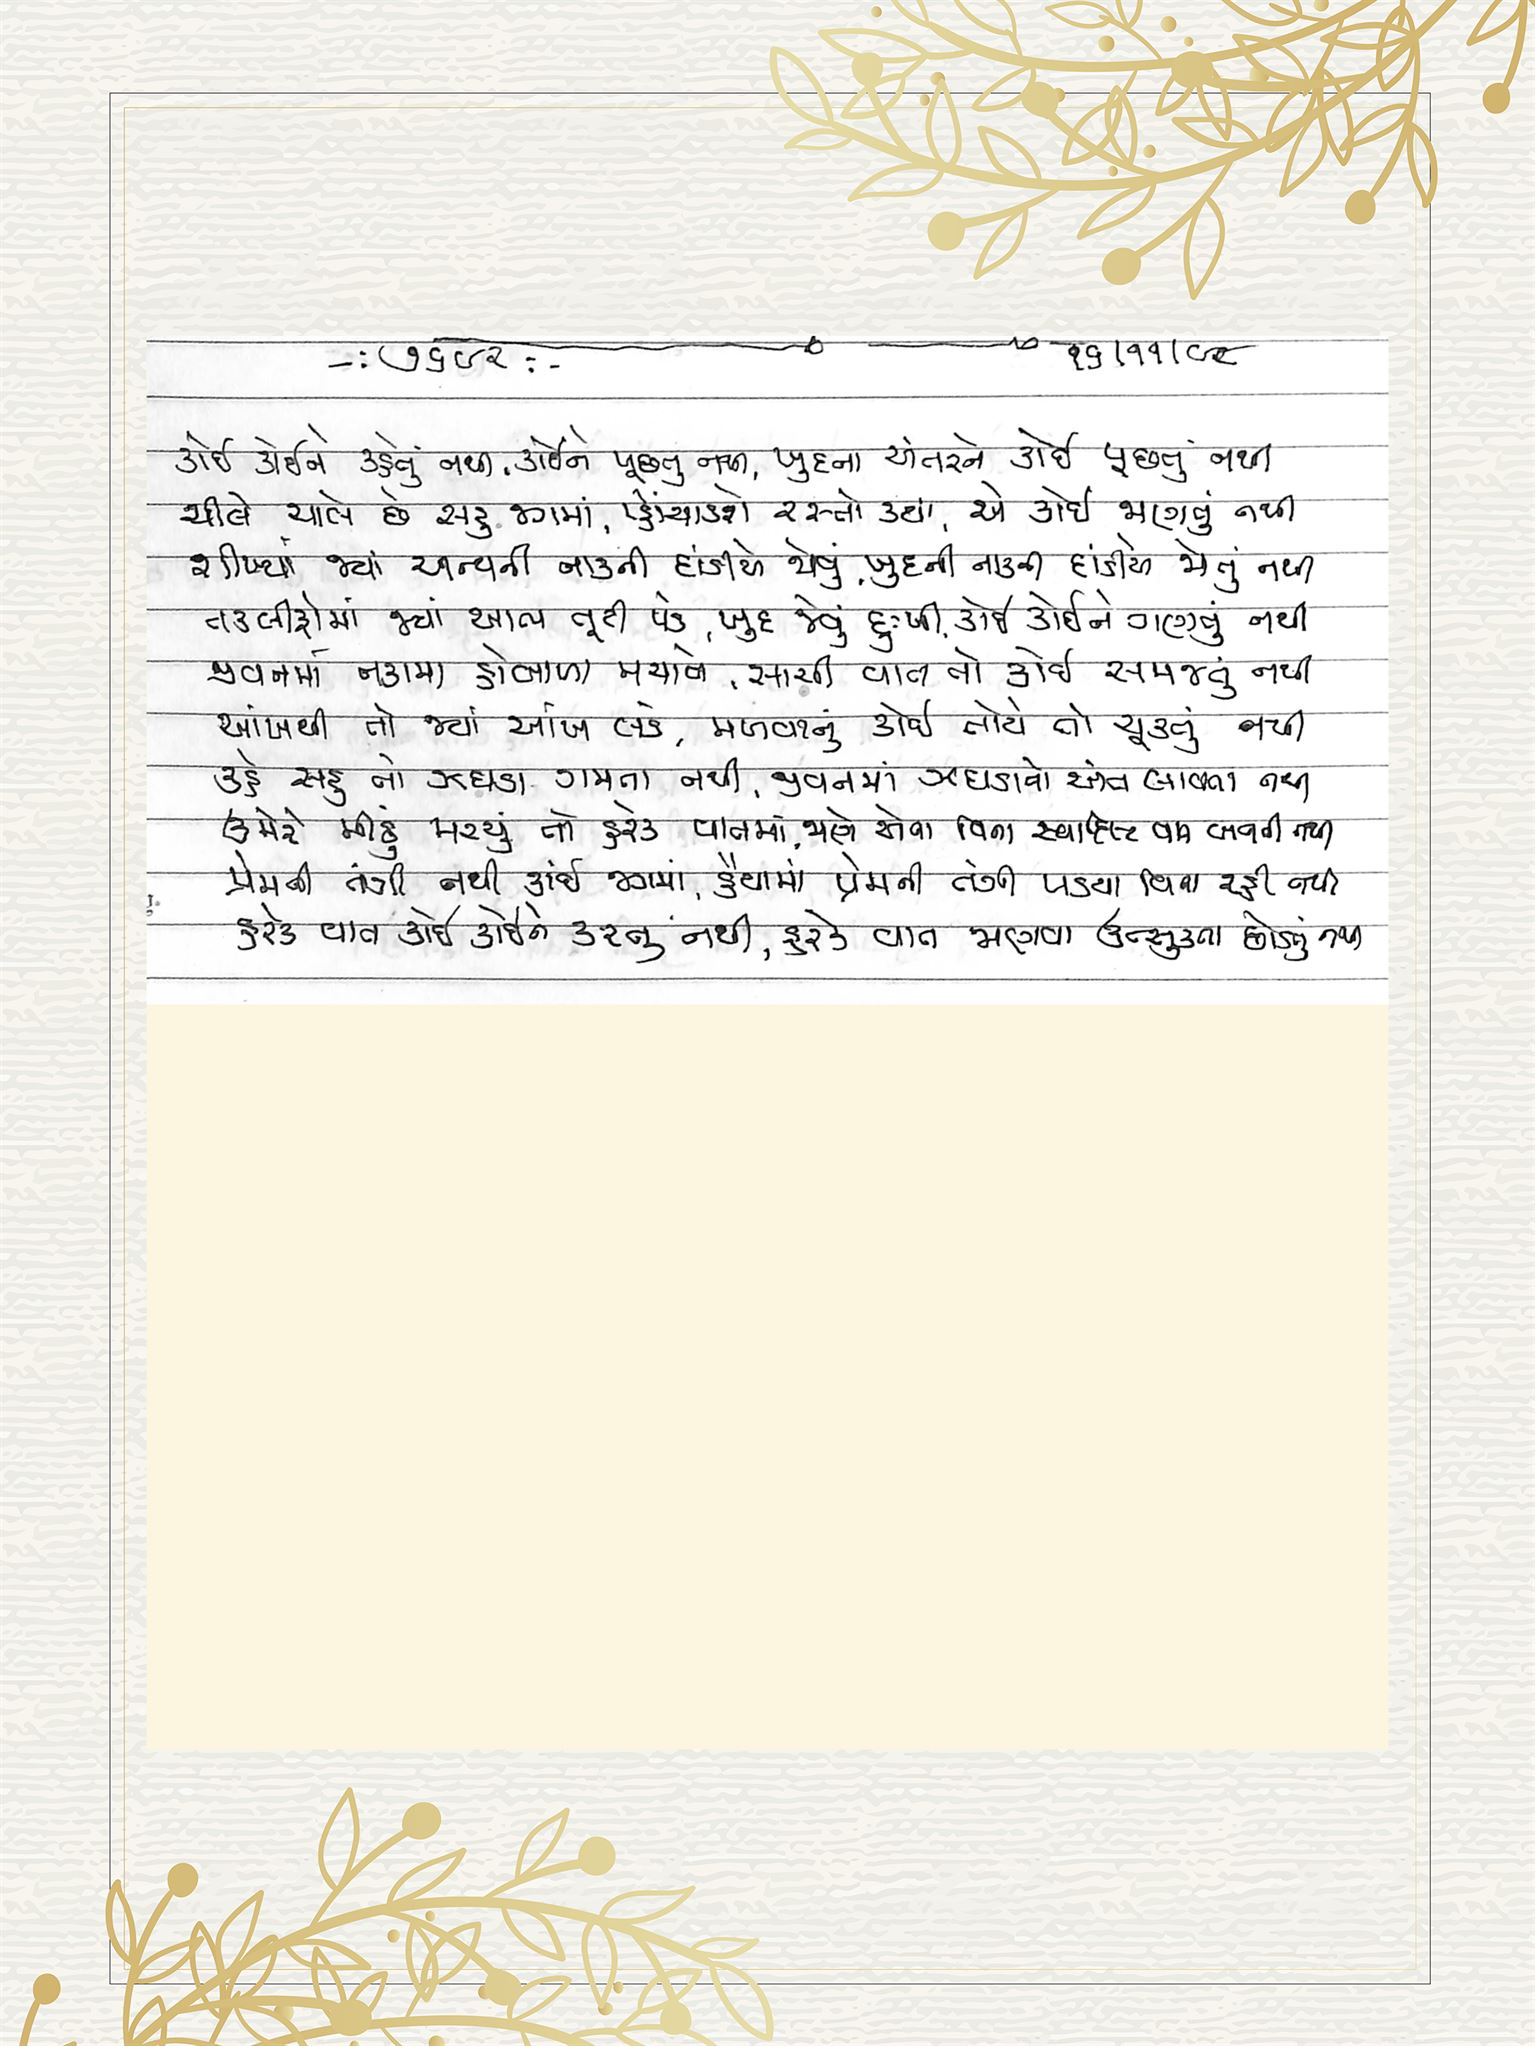 -: ૭૬૯૨ :- ૧૬/૧૧/૯૮
કોઈ કોઈને કહેતું નથી, કોઈને પૂછતું નથી, ખુદના અંતરને કોઈ પૂછતું નથી
ચીલે ચાલે છે સહુ જગમાં, પ્હોંચાડશે રસ્તો ક્યાં, એ કોઈ જાણતું નથી
શીખ્યાં જ્યાં અન્યની નાકની દાંડીએ જોવું, ખુદની નાકની દાંડીએ જોતું નથી
તકલીફોમાં જ્યાં આભ તૂટી પડે, ખુદ જેવું દુઃખી, કોઈ કોઈને ગણતું નથી
જીવનમાં નકામા હોબાળા મચાવે, સાચી વાત તો કોઈ સમજતું નથી
આંખથી તો જ્યાં આંખ લડે, મળવાનું કોઈ તોયે તો ચૂકતું નથી
કહે સહુ તો ઝઘડા ગમતા નથી, જીવનમાં ઝઘડાનો અંત લાવતા નથી
ઉમેરે મીઠું મરચું તો હરેક વાતમાં, જાણે એના વિના સ્વાદિષ્ટ વાત બનતી નથી
પ્રેમની તંગી નથી કાંઈ જગમાં, હૈયામાં પ્રેમની તંગી પડયા વિના રહી નથી
હરેક વાત કોઈ કોઈને કરતું નથી, હરેક વાત જાણવા ઉત્સુકતા છોડતું નથી